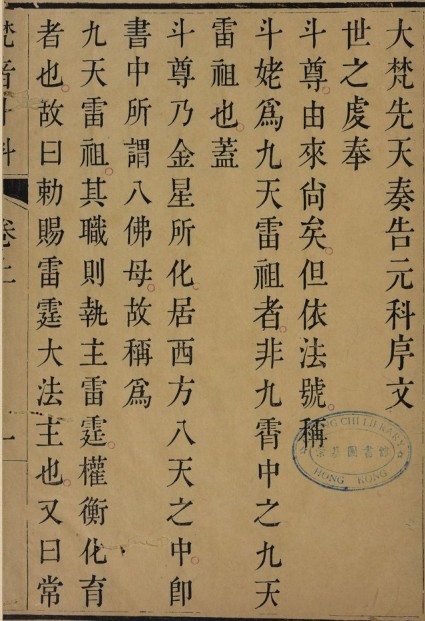 大梵先天奏告元科序文
世之虔奉
斗尊由來尙矣但依法號稱
斗姥爲九天雷祖者非九霄中之九天
雷祖也蓋
斗尊乃金星所化居西方八天之中卽
書中所謂八佛母故稱爲
九天雷祖其職則執主雷霆權衡化育
者也故曰勅賜雷霆大法主也又曰常
梵音斗科 卷上 一
HONG KONG